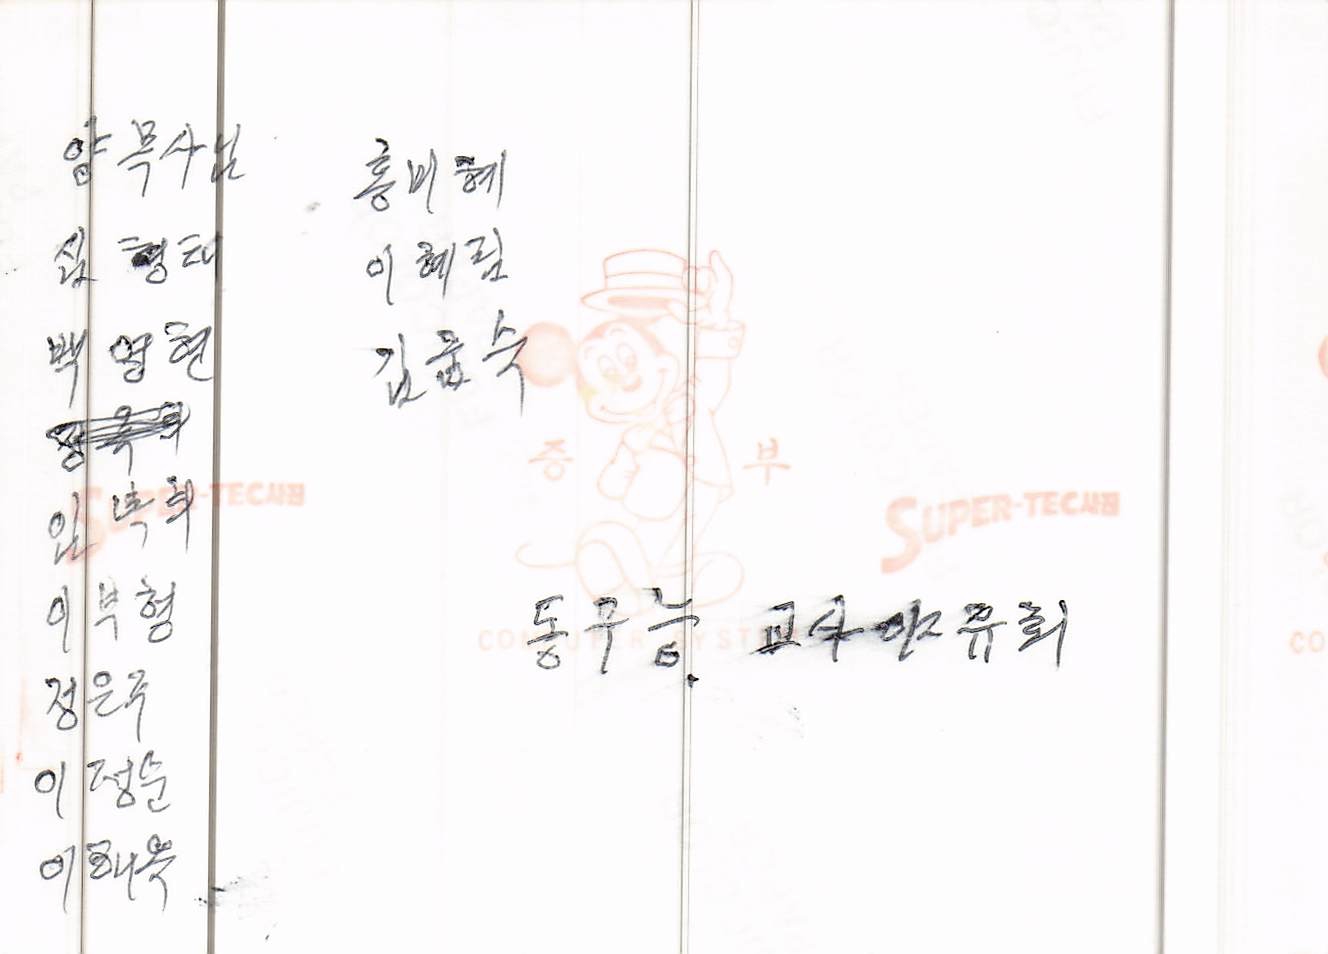 양 목사님
심 형태
백 영현
임 낙희
이 부형
정은주
이 정순
이래욱
홍미혜
이혜림
김윤숙
중 부
SUPER-TEC시험
SUPER-TEC시험
COMPUTER SYSTE
동무능 교사 유희